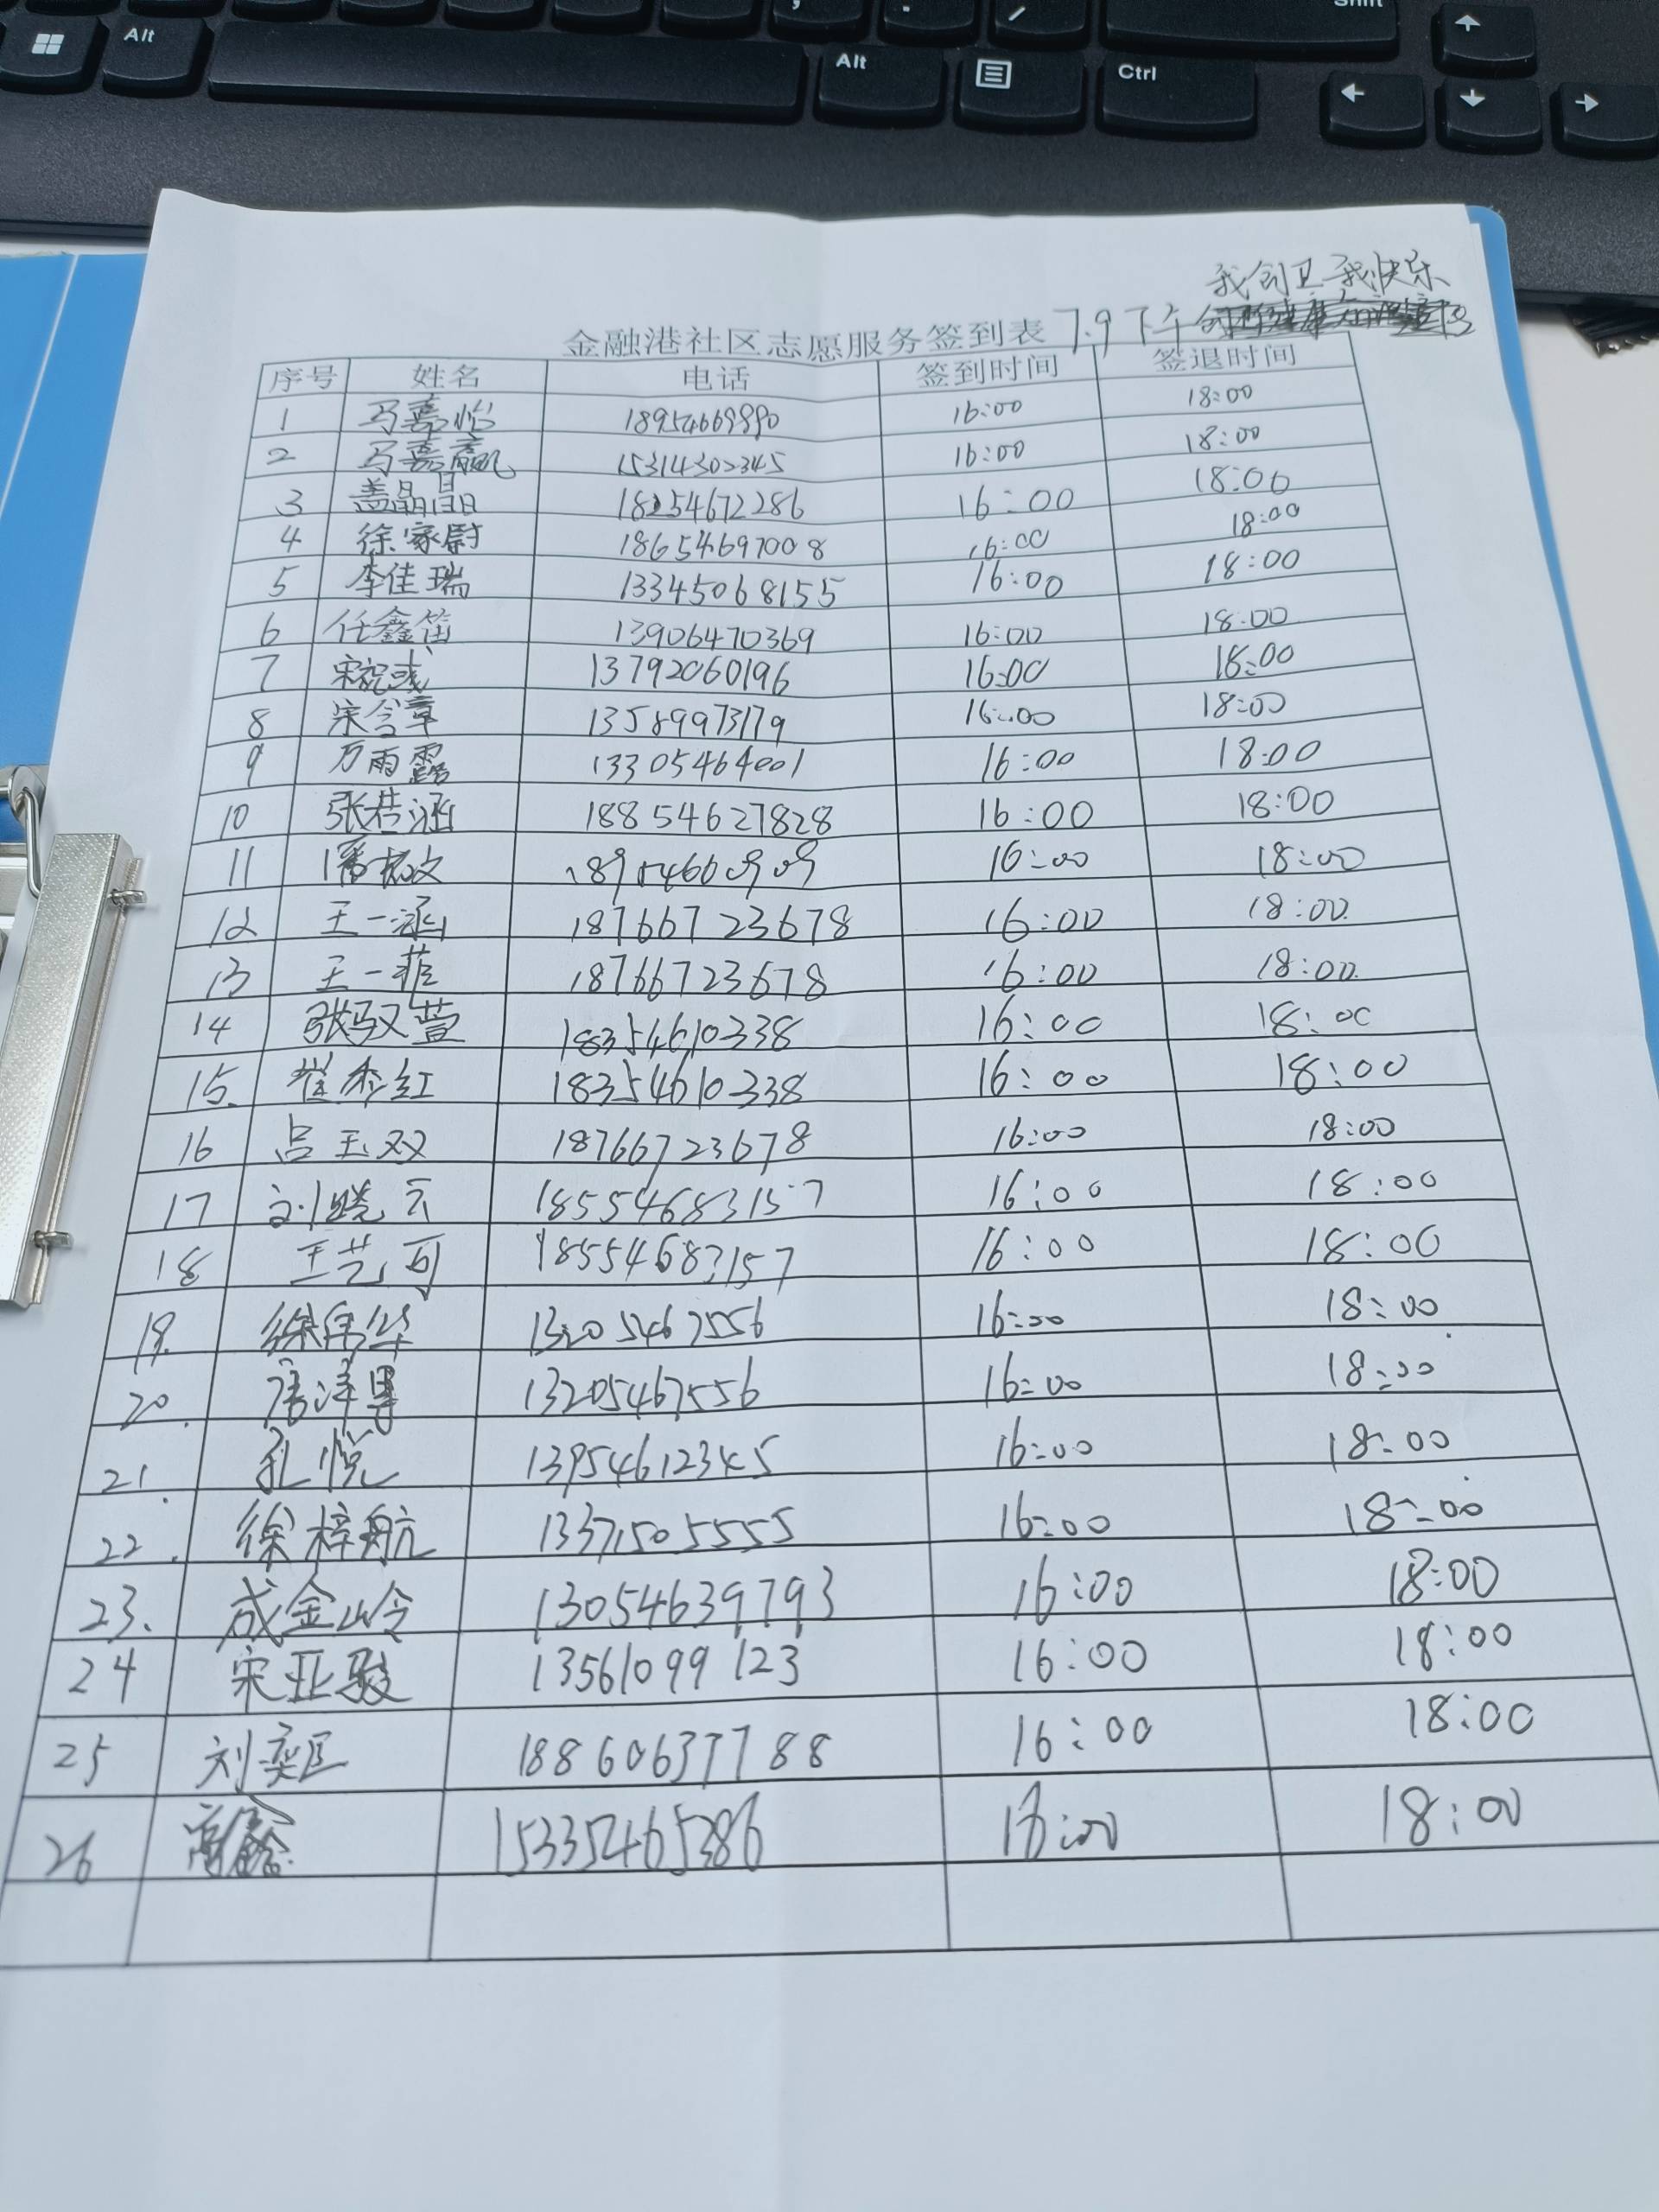 Shift
Alt
Alt
Ctrl
我创卫 我快乐
金融港社区志愿服务签到表 7.9下午
序号 姓名 电话 签到时间 签退时间
1 马嘉怡 18954669890 16:00 18:00
2 马嘉赢 15314302345 16:00 18:00
3 盖晶晶 18254672286 16:00 18:00
4 徐家尉 18654697008 16:00 18:00
5 李佳瑞 13345068155 16:00 18:00
6 任鑫笛 13906470369 16:00 18:00
7 宋祝彧 13792060196 16:00 18:00
8 宋含章 13589973179 16:00 18:00
9 万雨露 13305464001 16:00 18:00
10 张若涵 18854627828 16:00 18:00
11 潘 16:00 18:00
12 王一涵 18766723678 16:00 18:00
13 王一菲 18766723678 16:00 18:00
14 张驭萱 18354610338 16:00 18:00
15. 崔秀红 18354610338 16:00 18:00
16 吕玉双 18766723678 16:00 18:00
17 刘晓云 18554683157 16:00 18:00
18 王艺可 18554683157 16:00 18:00
19. 徐伟华 13205467556 16:00 18:00
20. 唐泽 13205467556 16:00 18:00
21. 孔悦 13954612345 16:00 18:00
22. 徐梓航 13371505555 16:00 18:00
23. 成金岭 13054639793 16:00 18:00
24 宋亚骏 13561099123 16:00 18:00
25 刘奕 18860637788 16:00 18:00
26 高鑫 15335465386 16:00 18:00